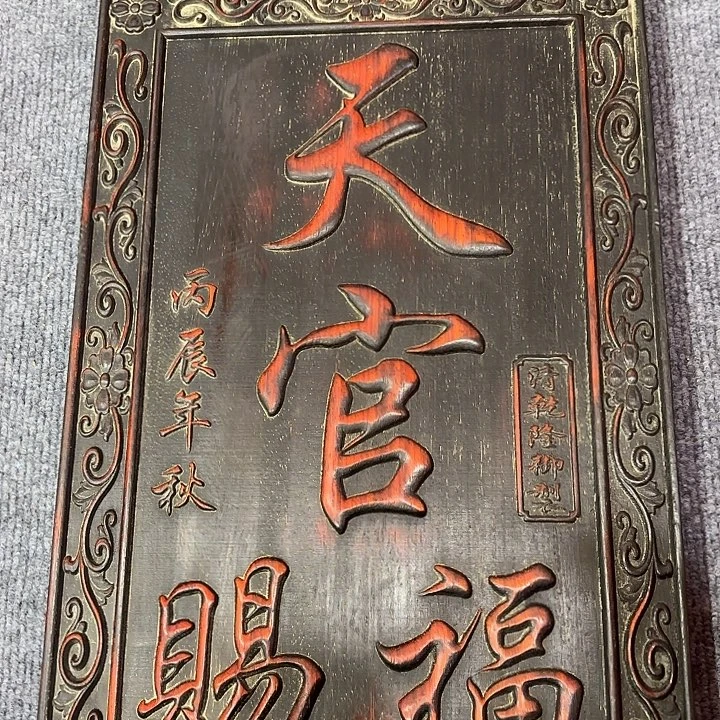 天
官
賜福
清乾隆御製
丙辰年秋